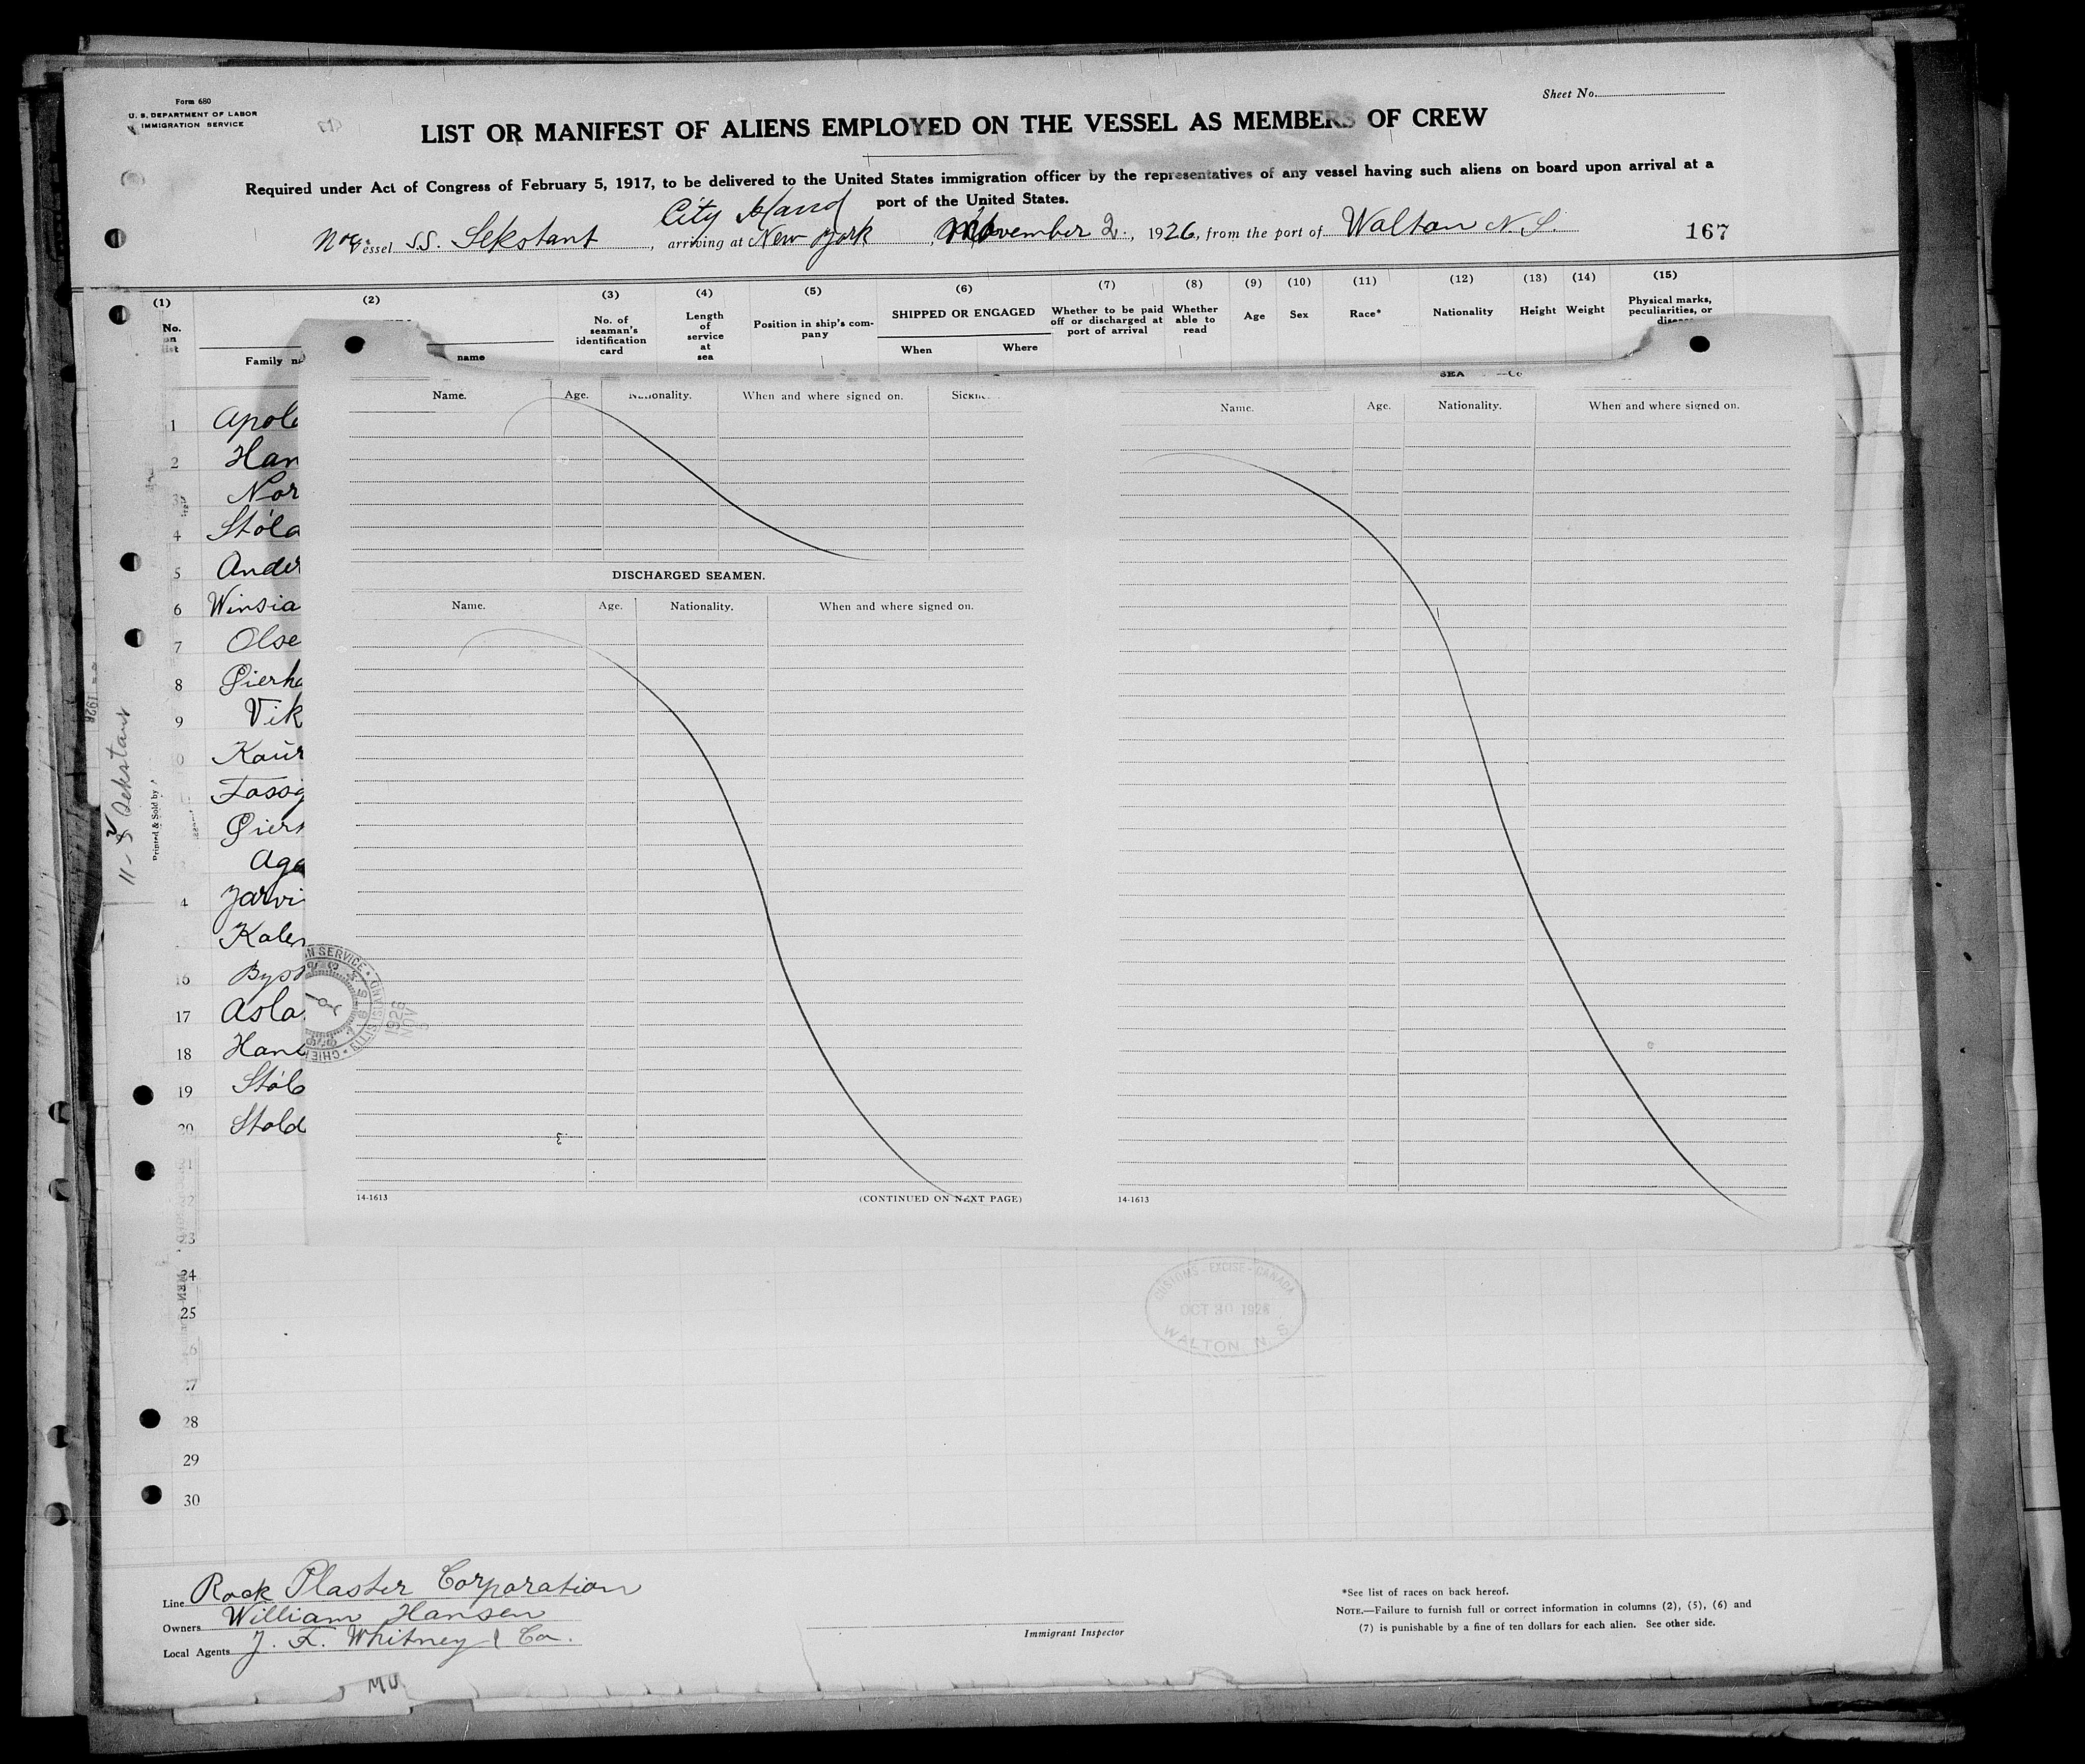 Form 680
U. S. DEPARTMENT OF LABOR
IMMIGRATION SERVICE
Sheet No.
LIST OR MANIFEST OF ALIENS EMPLOYED ON THE VESSEL AS MEMBERS OF CREW
Required under Act of Congress of February 5, 1917, to be delivered to the United States immigration officer by the representatives of any vessel having such aliens on board upon arrival at a
port of the United States.
City Island
Vessel S.S. Sekstant, arriving at New York, November 2, 1926, from the port of Walton N.S.
167
(1) (2) (3) (4) (5) (6) (7) (8) (9) (10) (11) (12) (13) (14) (15)
No. on list
Family
name
No. of seaman's identification card
Length of service at sea
Position in ship's company
SHIPPED OR ENGAGED
When Where
Whether to be paid off or discharged at port of arrival
Whether able to read
Age
Sex
Race*
Nationality
Height
Weight
Physical marks, peculiarities, or
Name. Age. Nationality. When and where signed on.
DISCHARGED SEAMEN.
Name. Age. Nationality. When and where signed on.
14-1613 (CONTINUED ON NEXT PAGE)
Name. Age. Nationality. When and where signed on.
14-1613
1 Apol
2 Han
3 Nor
4 Stöla
5 Ander
6 Winsia
7 Olse
8 Gierh
9 Vik
Kaur
Fossg
Gier
Aga
4 Jarvi
Kaler
16 Byst
17 Asla
18 Hans
19 Stöl
20 Stold
21
22
23
24
25
28
29
30
11-5 Sekstant
Printed & Sold by
1926
N SERVICE
CHIEF
ELLIS ISLAND
1926
NOV
CUSTOMS - EXCISE - CANADA
OCT 30 1926
WALTON N. S.
Line Rock Plaster Corporation
Owners William Hansen
Local Agents J. F. Whitney & Co.
Immigrant Inspector
*See list of races on back hereof.
NOTE.—Failure to furnish full or correct information in columns (2), (5), (6) and
(7) is punishable by a fine of ten dollars for each alien. See other side.